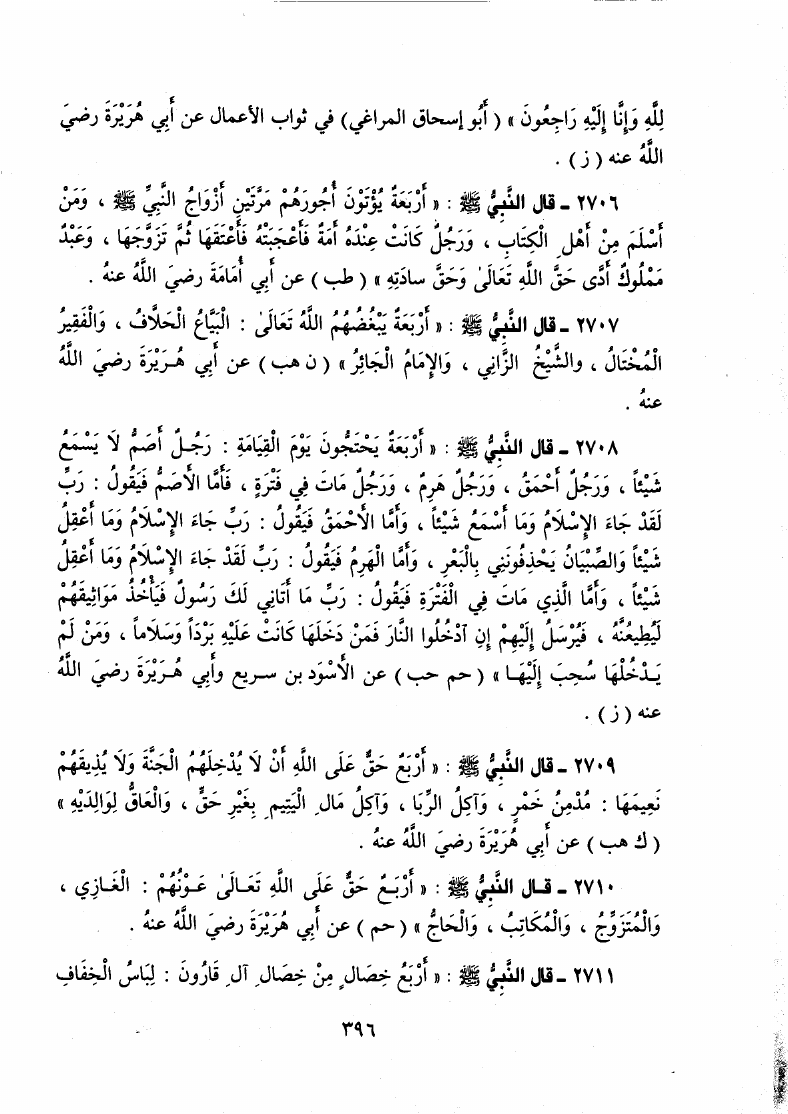 لِلَّهِ وَإِنَّا إِلَيْهِ رَاجِعُونَ » ( أَبُو إسحاق المراغي) في ثواب الأعمال عن أَبِي هُرَيْرَةَ رضيَ
اللَّهُ عنه ( ز ) .
٢٧٠٦ ـ قال النَّبِيُّ ﷺ : « أَرْبَعَةٌ يُؤْتَوْنَ أُجورَهُمْ مَرَّتَيْنِ أَزْوَاجُ النَّبِيِّ ﷺ ، وَمَنْ
أَسْلَمَ مِنْ أَهْلِ الْكِتَابِ ، وَرَجُلٌ كَانَتْ عِنْدَهُ أَمَةٌ فَأَعْجَبَتْهُ فَأَعْتَقَهَا ثُمَّ تَزَوَّجَهَا ، وَعَبْدٌ
مَمْلُوكٌ أَدَّى حَقَّ اللَّهِ تَعَالَىٰ وَحَقَّ سادَتِهِ » ( طب ) عن أَبِي أُمَامَةَ رضيَ اللَّهُ عنهُ .
٢٧٠٧ ـ قال النَّبِيُّ ﷺ : « أَرْبَعَةٌ يَبْغُضُهُمُ اللَّهُ تَعَالَىٰ : الْبَيَّاعُ الْحَلَّافُ ، وَالْفَقِيرُ
الْمُخْتَالُ ، والشَّيْخُ الزَّانِي ، وَالإِمَامُ الْجَائِرُ » ( ن هب ) عن أَبِي هُـرَيْرَةَ رضـيَ اللَّهُ
عنهُ .
٢٧٠٨ ـ قال النَّبِيُّ ﷺ : « أَرْبَعَةٌ يَحْتَجُّونَ يَوْمَ الْقِيَامَةِ : رَجُـلٌ أَصَمُّ لَا يَسْمَعُ
شَيْئاً ، وَرَجُلٌ أَحْمَقُ ، وَرَجُلٌ هَرِمٌ ، وَرَجُلٌ مَاتَ فِي فَتْرَةٍ ، فَأَمَّا الأَصَمُّ فَيَقُولُ : رَبِّ
لَقَدْ جَاءَ الإِسْلَامُ وَمَا أَسْمَعُ شَيْئاً ، وَأَمَّا الأَحْمَقُ فَيَقُولُ : رَبِّ جَاءَ الإِسْلَامُ وَمَا أَعْقِلُ
شَيْئاً وَالصِّبْيَانُ يَحْذِفُونَنِي بِالْبَعْرِ ، وَأَمَّا الْهَرِمُ فَيَقُولُ : رَبِّ لَقَدْ جَاءَ الإِسْلَامُ وَمَا أَعْقِلُ
شَيْئاً ، وَأَمَّا الَّذِي مَاتَ فِي الْفَتْرَةِ فَيَقُولُ : رَبِّ مَا أَتَانِي لَكَ رَسُولٌ فَيَأْخُذُ مَوَاثِيقَهُمْ
لَيُطِيعُنَّهُ ، فَيُرْسَلُ إِلَيْهِمْ إِنِ آدْخُلُوا النَّارَ فَمَنْ دَخَلَهَا كَانَتْ عَلَيْهِ بَرْدَاً وَسَلَاماً ، وَمَنْ لَمْ
يَـدْخُلْهَا سُحِبَ إِلَيْهَـا » ( حم حب ) عن الأَسْوَدِ بن سـريع وأَبِي هُـرَيْرَةَ رضيَ اللَّهُ
عنه ( ز ) .
٢٧٠٩ ـ قال النَّبِيُّ ﷺ : « أَرْبَعٌ حَقٌّ عَلَى اللَّهِ أَنْ لَا يُدْخِلَهُمُ الْجَنَّةَ وَلَا يُذِيقَهُمْ
نَعِيمَهَا : مُدْمِنُ خَمْرٍ ، وَآكِلُ الرِّبَا ، وَآكِلُ مَالِ الْيَتِيمِ بِغَيْرِ حَقٍّ ، وَالْعَاقُّ لِوَالِدَيْهِ »
( ك هب ) عن أَبِي هُرَيْرَةَ رضيَ اللَّهُ عنهُ .
٢٧١٠ ـ قـال النَّبِيُّ ﷺ : « أَرْبَـعٌ حَقٌّ عَلَى اللَّهِ تَعَـالَىٰ عَـوْنُهُمْ : الْغَـازِي ،
وَالْمُتَزَوِّجُ ، وَالْمُكَاتِبُ ، وَالْحَاجُّ » ( حم ) عن أَبِي هُرَيْرَةَ رضيَ اللَّهُ عنهُ .
٢٧١١ ـ قال النَّبِيُّ ﷺ : « أَرْبَعُ خِصَالٍ مِنْ خِصَالِ آلِ قَارُونَ : لِبَاسُ الْخِفَافِ
٣٩٦